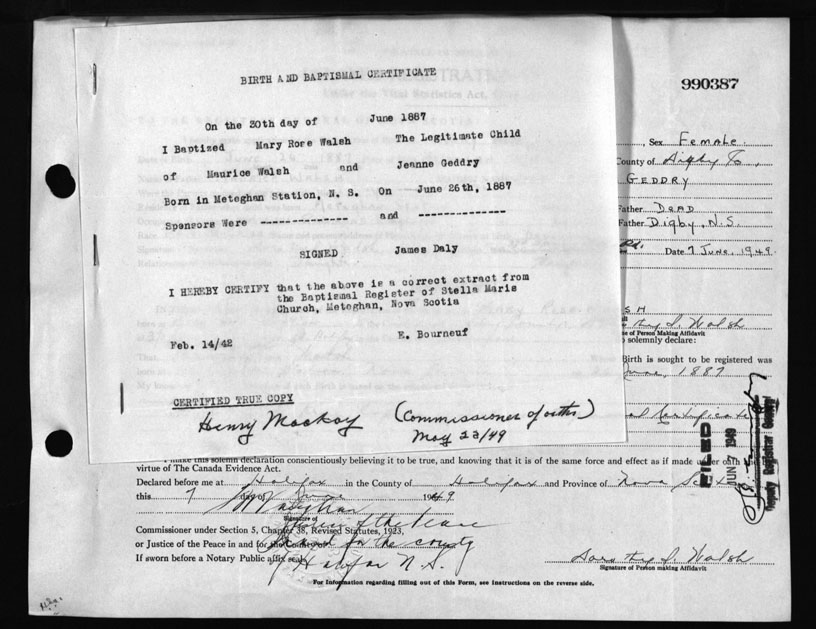 BIRTH AND BAPTISMAL CERTIFICATE
On the 30th day of June 1887
I Baptized Mary Rore Walsh The Legitimate Child
of Maurice Walsh and Jeanne Geddry
Born in Meteghan Station, N. S. On June 26th, 1887
Sponsors Were -------------- and --------------
SIGNED James Daly
I HEREBY CERTIFY that the above is a correct extract from
the Baptismal Register of Stella Maris
Church, Meteghan, Nova Scotia
Feb. 14/42 E. Bourneuf
CERTIFIED TRUE COPY
Henry Mackay (Commissioner of oaths)
May 23/49
990387
, Sex Female.
County of Digby Co,
GEDDRY
Father DEAD
Father DIGBY, N.S.
Date 7 June, 1949.
SH
Walsh
of Person Making Affidavit
solemnly declare:
Birth is sought to be registered was
June, 1887
Certificate
FILED
JUN 7 1949
Deputy Registrar General
I make this solemn declaration conscientiously believing it to be true, and knowing that it is of the same force and effect as if made under oath
virtue of The Canada Evidence Act.
Declared before me at Halifax in the County of Halifax and Province of Nova Scotia
this 7 day of June 1949
Signature of
Justice of the Peace
Commissioner under Section 5, Chapter 38, Revised Statutes, 1923,
or Justice of the Peace in and for the County of
and for the county
If sworn before a Notary Public affix seal.
of Halifax N.S.
Dorothy J. Walsh
Signature of Person making Affidavit
For Information regarding filling out of this Form, see instructions on the reverse side.